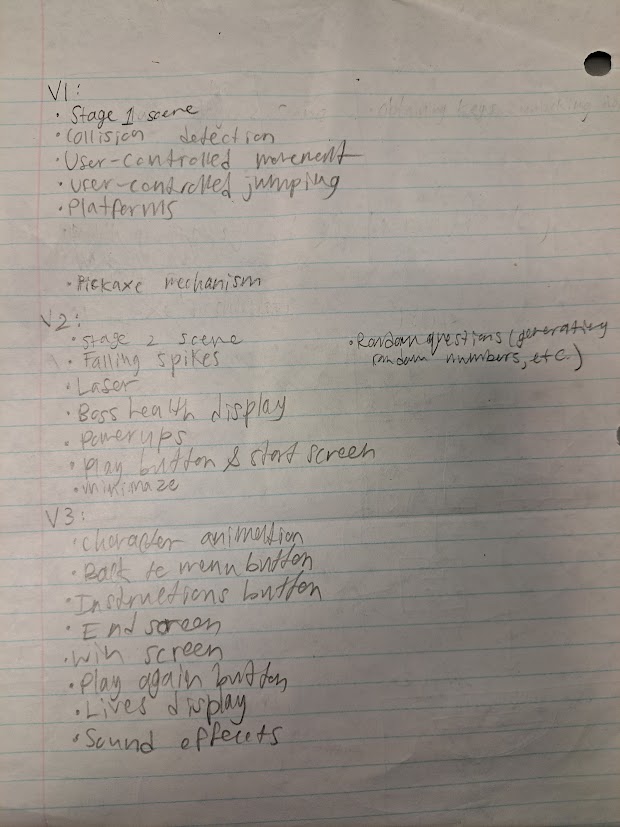 V1:
• Stage 1 scene
• Collision detection
• User-controlled movement
• User-controlled jumping
• Platforms
• Pickaxe mechanism
V2:
• Stage 2 scene
• Falling spikes
• Laser
• Boss health display
• Powerups
• Play button & start screen
• minimaze
• Random questions (generating
random numbers, etc.)
V3:
• Character animation
• Back to menu button
• Instructions button
• End screen
• Win screen
• Play again button
• Lives display
• Sound effects